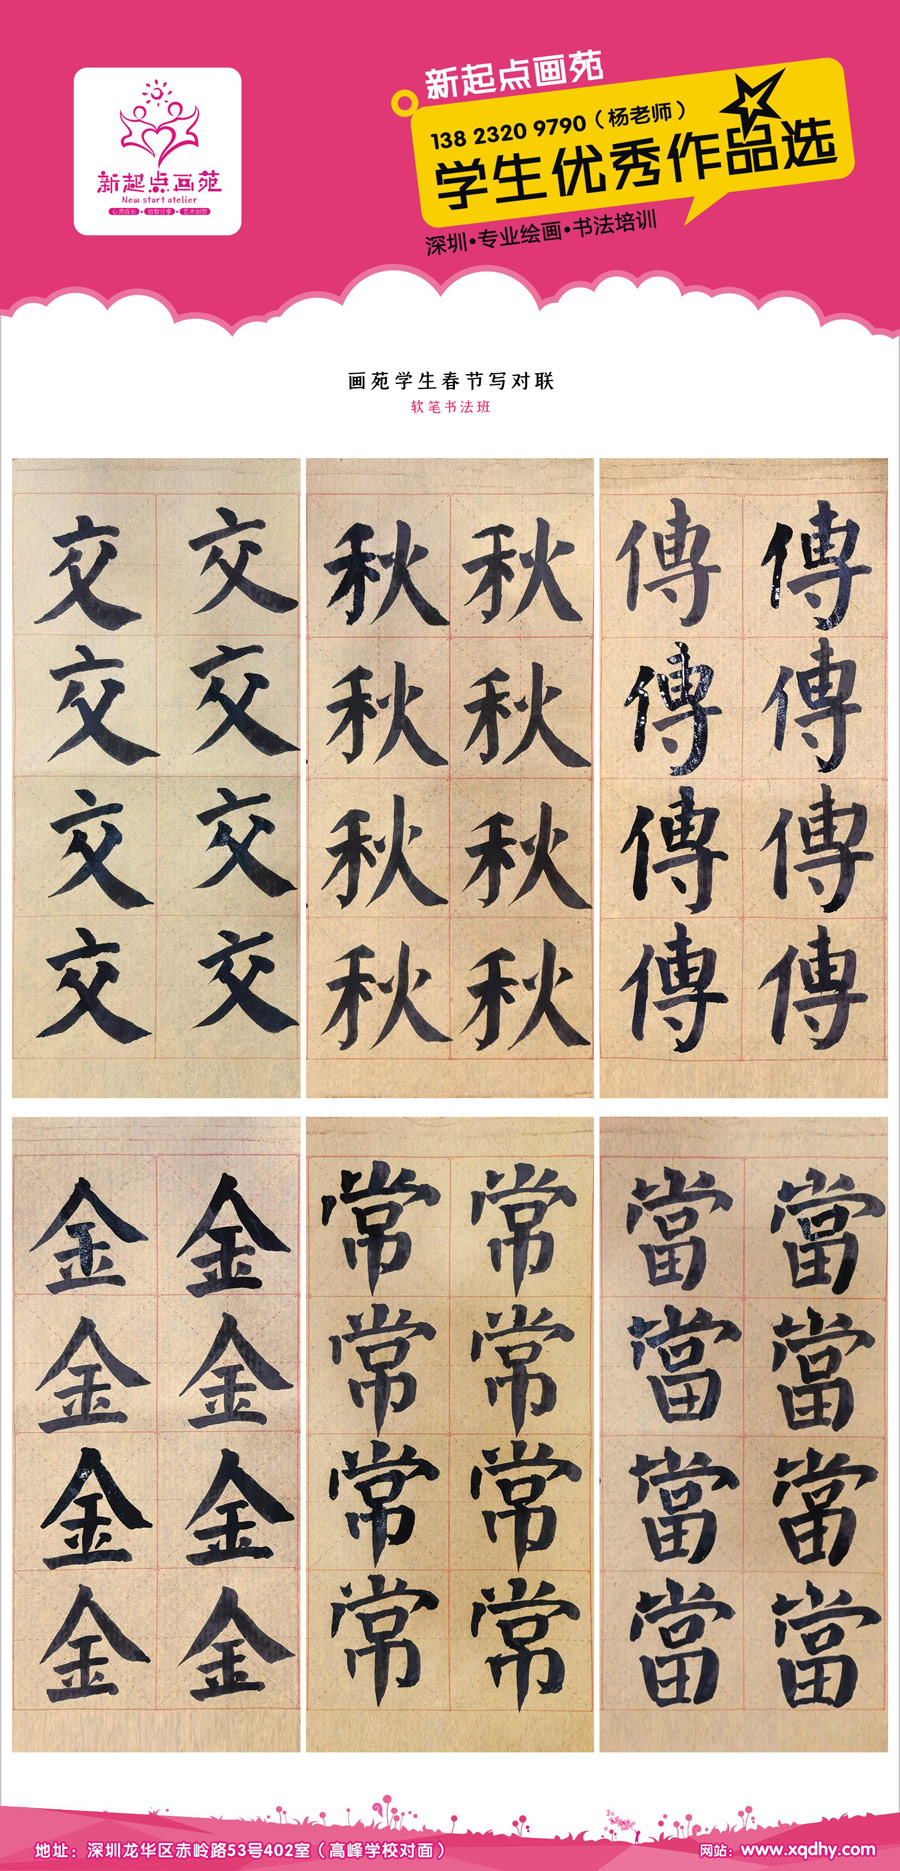 新起点画苑
New start atelier
心灵成长•启智分享•艺术创想
新起点画苑
138 2320 9790（杨老师）
学生优秀作品选
深圳•专业绘画•书法培训
画苑学生春节写对联
软笔书法班
交 交
交 交
交 交
交 交
秋 秋
秋 秋
秋 秋
秋 秋
傳 傳
傳 傳
傳 傳
傳 傳
金 金
金 金
金 金
金 金
常 常
常 常
常 常
常 常
當 當
當 當
當 當
當 當
地址：深圳龙华区赤岭路53号402室（高峰学校对面）
网站：www.xqdhy.com